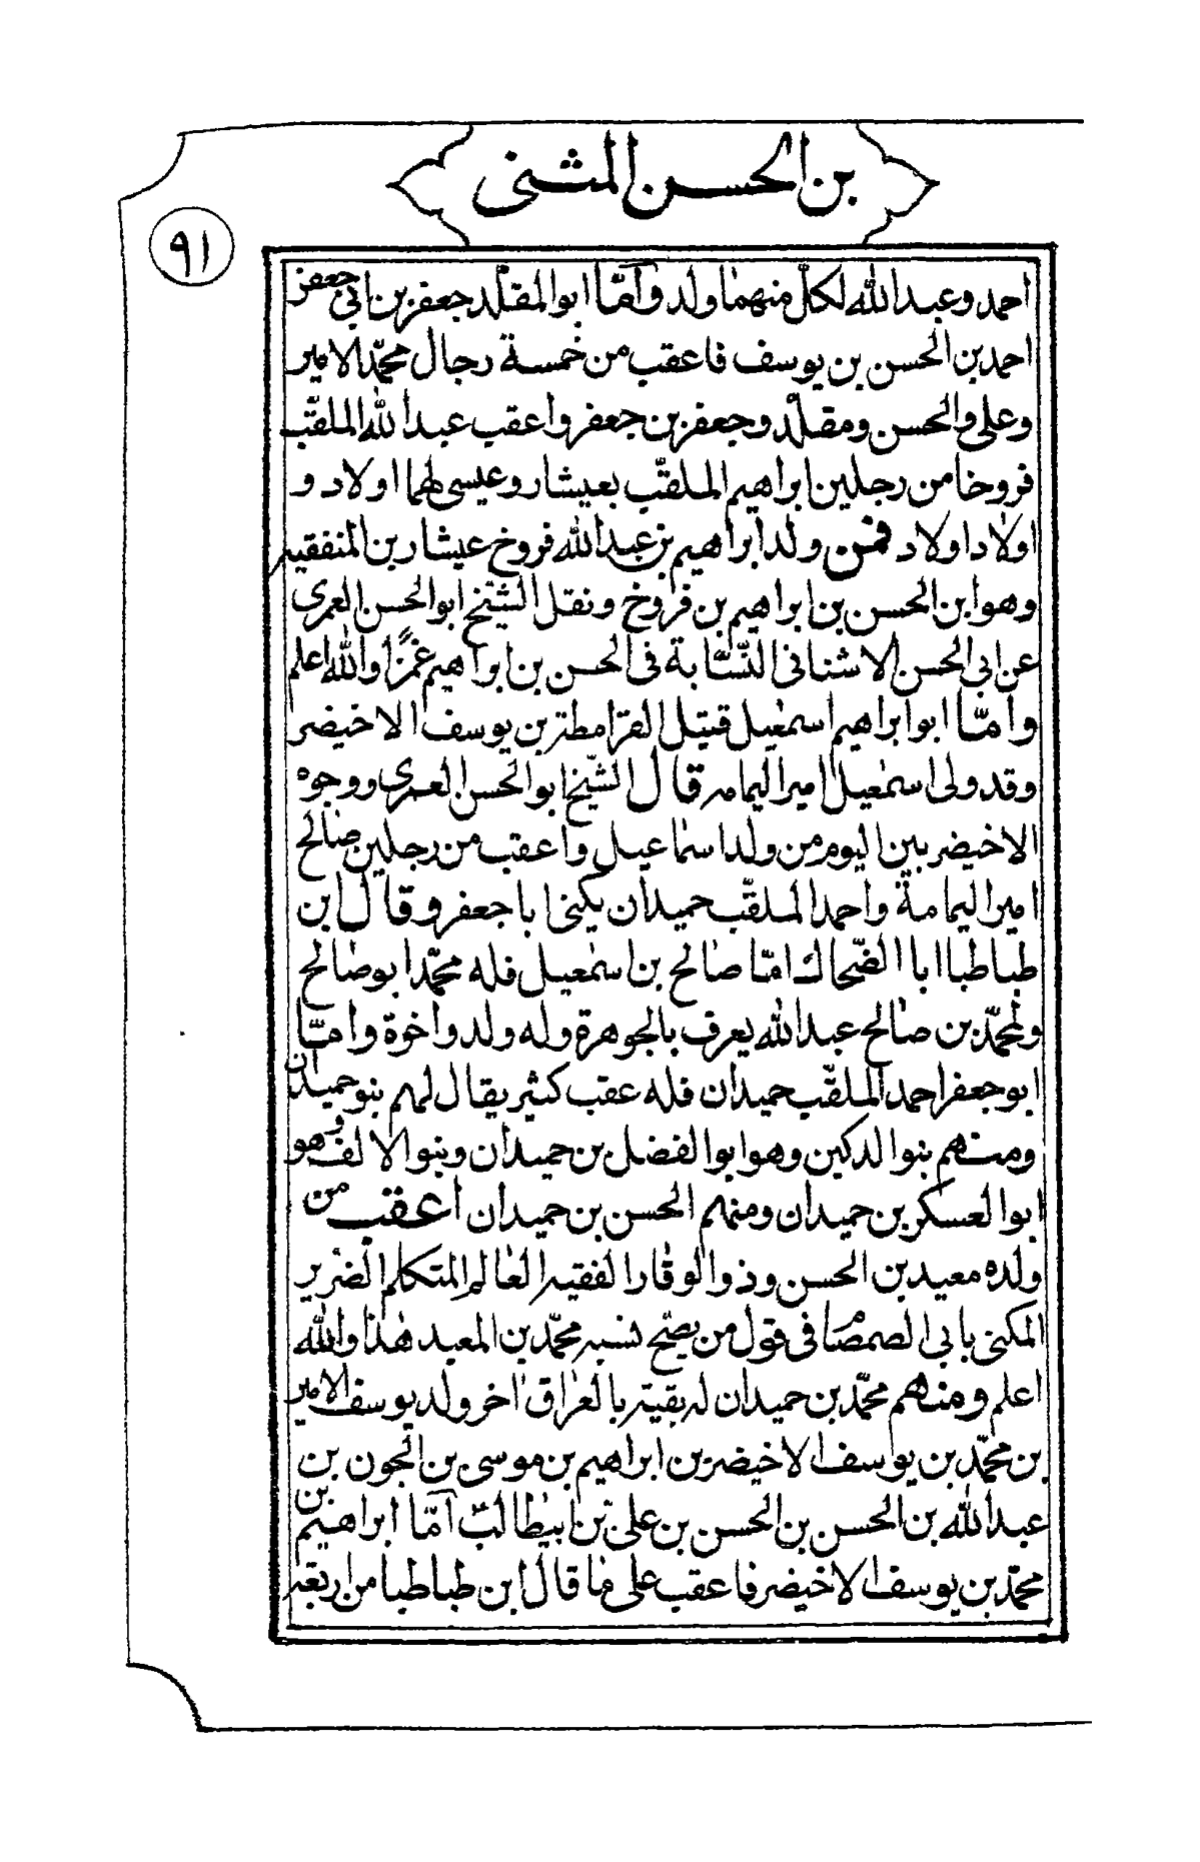 بن الحسن المثنى
٩١
احمد وعبد الله لكل منهما ولد وأمّا ابو المقلد جعفر بن ابي جعفر
احمد بن الحسن بن يوسف فاعقب من خمسة رجال محمّد الامير
وعلى والحسن ومقلد وجعفر بن جعفر واعقب عبد الله الملقّب
فروخا من رجلين ابراهيم الملقّب بعيشار وعيسى لهما اولاد و
اولاد اولاد فمن ولد ابراهيم بن عبد الله فروخ عيشار بن المنفقيه
وهو ابن الحسن بن ابراهيم بن فروخ ونقل الشيخ ابو الحسن العمرى
عن ابى الحسن الاشنانى النسّابة فى الحسن بن ابراهيم غمزًا والله اعلم
وامّا ابو ابراهيم اسمعيل قتيل القرامطه بن يوسف الاخيضر
وقد ولى اسمعيل امير اليمامه قال الشّيخ ابو الحسن العمرى ووجوه
الاخيضريين اليوم من ولد اسماعيل واعقب من رجلين صالح
امير اليمامة واحمد الملقّب حميدان يكنى ابا جعفر وقال ابن
طباطبا ابا الضّحاك امّا صالح بن اسمعيل فله محمّد ابو صالح
ولمحمّد بن صالح عبد الله يعرف بالجوهرة وله ولد واخوة وامّا
ابو جعفر احمد الملقّب حميدان فله عقب كثير يقال لهم بنو حميدان
ومنهم بنو الدكين وهو ابو الفضل بن حميدان وبنو الالف وهو
ابو العسكر بن حميدان ومنهم الحسن بن حميدان اعقب من
ولده معيد بن الحسن وذو الوقار الفقيه العالم المتكلم الضرير
المكنى بابى الصمصام فى قول من يصحّ نسبه محمّد بن المعيد هذا والله
اعلم ومنهم محمّد بن حميدان له بقيته بالعراق اخر ولد يوسف الامير
بن محمّد بن يوسف الاخيضر بن ابراهيم بن موسى بن الجون بن
عبد الله بن الحسن بن الحسن بن على بن ابيطالب امّا ابراهيم بن
محمّد بن يوسف الاخيضر فاعقب على ما قال ابن طباطبا من اربعه